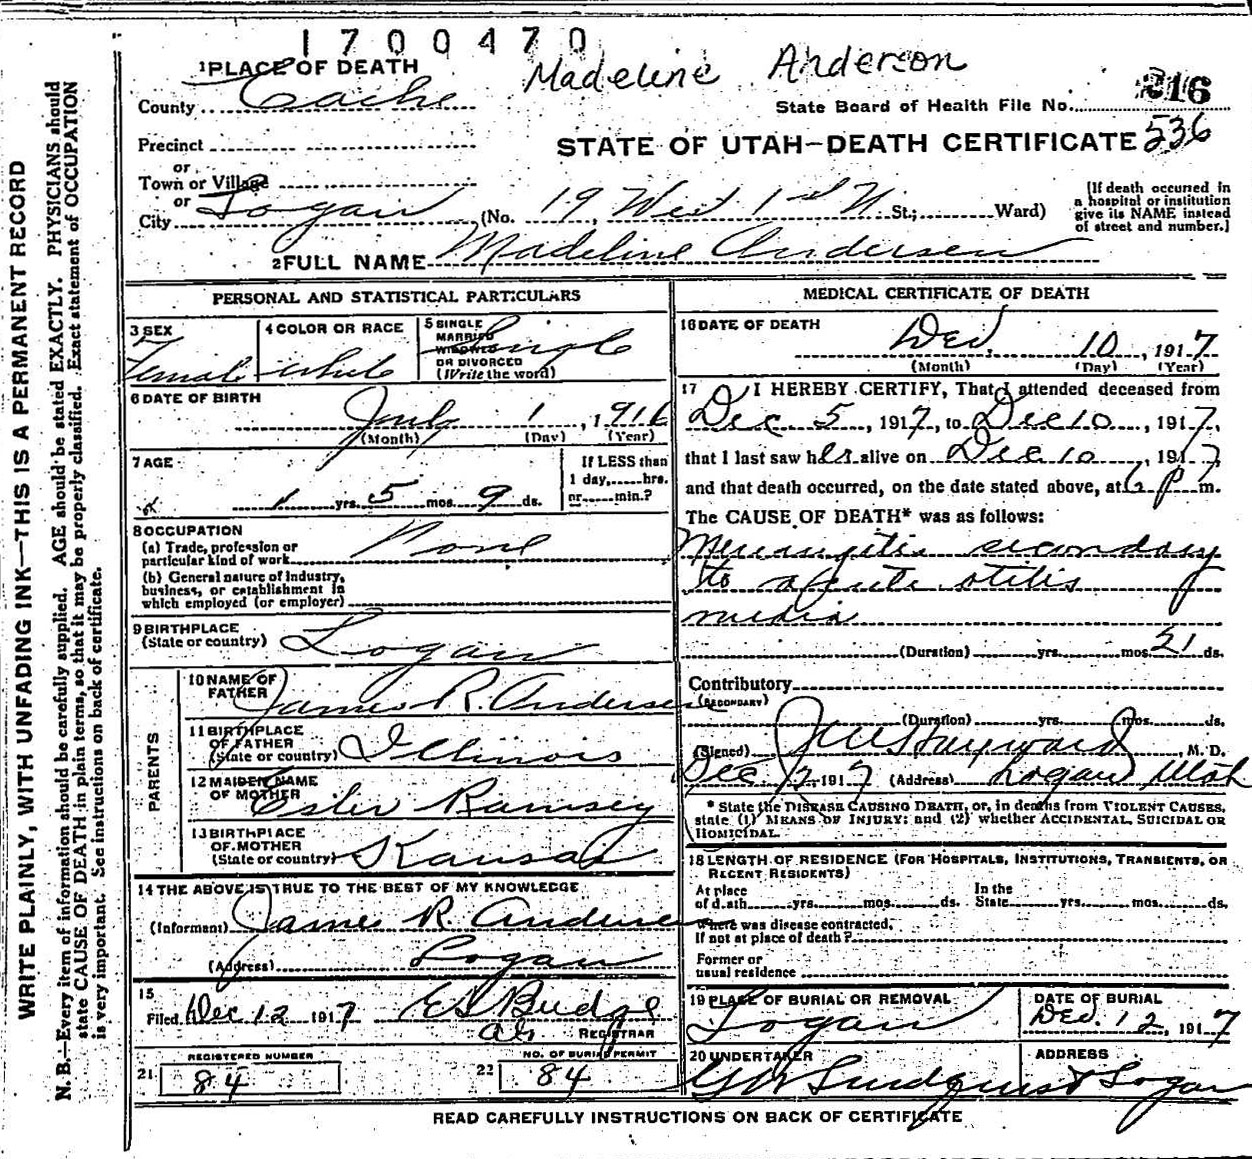 1700470
1 PLACE OF DEATH
Madeline Anderson
County Cache
State Board of Health File No. 316
Precinct
STATE OF UTAH—DEATH CERTIFICATE 536
or
Town or Village
or
City Logan (No. 19 West 1st N. St.; Ward)
[If death occurred in
a hospital or institution
give its NAME instead
of street and number.]
2 FULL NAME Madeline Andersen
PERSONAL AND STATISTICAL PARTICULARS
3 SEX
Female
4 COLOR OR RACE
White
5 SINGLE
MARRIED
WIDOWED
OR DIVORCED
(Write the word)
Single
6 DATE OF BIRTH
July 1, 1916
(Month) (Day) (Year)
7 AGE
1 yrs. 5 mos. 9 ds.
If LESS than
1 day, hrs.
or min.?
8 OCCUPATION
(a) Trade, profession or
particular kind of work None
(b) General nature of industry,
business, or establishment in
which employed (or employer)
9 BIRTHPLACE
(State or country) Logan
PARENTS
10 NAME OF
FATHER James R. Andersen
11 BIRTHPLACE
OF FATHER
(State or country) Illinois
12 MAIDEN NAME
OF MOTHER Ester Ramsey
13 BIRTHPLACE
OF MOTHER
(State or country) Kansas
14 THE ABOVE IS TRUE TO THE BEST OF MY KNOWLEDGE
(Informant) James R. Andersen
(Address) Logan
15
Filed Dec 12 1917 Budge
REGISTRAR
21 REGISTERED NUMBER
84
22 NO. OF BURIAL PERMIT
84
MEDICAL CERTIFICATE OF DEATH
16 DATE OF DEATH
Dec, 10, 1917
(Month) (Day) (Year)
17 I HEREBY CERTIFY, That I attended deceased from
Dec 5 1917, to Dec 10, 1917,
that I last saw her alive on Dec 10, 1917
and that death occurred, on the date stated above, at 6 P m.
The CAUSE OF DEATH* was as follows:
Meningitis secondary
to acute otitis
media
(Duration) yrs. mos. 21 ds.
Contributory
(SECONDARY)
(Duration) yrs. mos. ds.
(Signed) Hayward, M. D.
Dec 12 1917 (Address) Logan Utah
* State the DISEASE CAUSING DEATH, or, in deaths from VIOLENT CAUSES,
state (1) MEANS OF INJURY; and (2) whether ACCIDENTAL, SUICIDAL OR
HOMICIDAL.
18 LENGTH OF RESIDENCE (FOR HOSPITALS, INSTITUTIONS, TRANSIENTS, OR
RECENT RESIDENTS)
At place
of death yrs. mos. ds.
In the
State yrs. mos. ds.
Where was disease contracted,
If not at place of death?
Former or
usual residence
19 PLACE OF BURIAL OR REMOVAL
Logan
DATE OF BURIAL
Dec. 12, 1917
20 UNDERTAKER
Lundquist
ADDRESS
Logan
READ CAREFULLY INSTRUCTIONS ON BACK OF CERTIFICATE
WRITE PLAINLY, WITH UNFADING INK—THIS IS A PERMANENT RECORD
N. B.—Every item of information should be carefully supplied. AGE should be stated EXACTLY. PHYSICIANS should
state CAUSE OF DEATH in plain terms, so that it may be properly classified. Exact statement of OCCUPATION
is very important. See instructions on back of certificate.